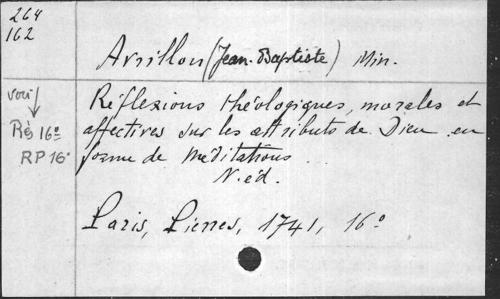 264
162
Avrillon (Jean-Baptiste) Min.
voir
Rés 16°
RP 16°
Réflexions théologiques, morales et
affectives sur les attributs de Dieu en
forme de Méditations
N. éd.
Paris, Pierres, 1741, 16°